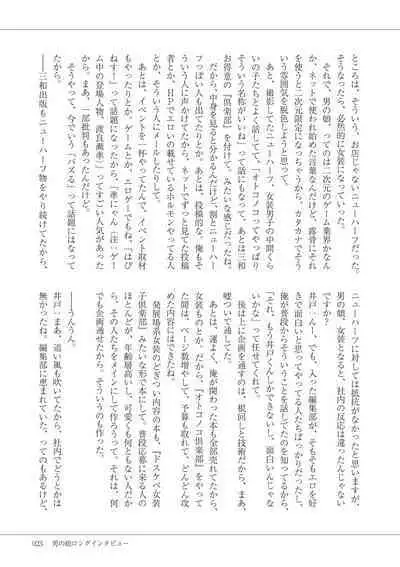 ところは。そういう、お店じゃないニューハーフだった。
そうなったら、必然的に女装になっていった。
それで、男の娘、っての は二次元のゲーム業界かなん
か、ネットで使われ始めた言葉なんだけど、露骨にそれ
を使うと二次元限定になっちゃうから、カタカナでそう
いう雰囲気を脱色しようと思って。
あと、撮影してたニューハーフ、女装男子の中間くら
いの子たちとよく話してて、「オトコノコってやっぱり
そういう名称がいいね」って話にもなって、あとは三和
お得意の『倶楽部』を付けて、みたいな感じだったね。
だから、中身を見ると分かるんだけど、割とニューハー
フっぽい人も出てたりとか。あとは、投稿的な、俺もそ
ういう人に声かけてたから、ネットでずっと見てた投稿
者とか、HPでエロいの載せているホルモンやってる人
とか、そういう人にメールしたりして。
あとは、イベントを一杯やってたんで、イベント取材
もやったりとか、ゲームとか。エロゲーでもね、『はぴ
ねす！』って話題になったから、「準にゃん（注：ゲー
ム中の登場人物、渡良瀬準）」ってすごい人気があった
から。まあ、一部批判もあったんだけど。
そうやって、今でいう「バズる」って話題にはなって
たから。
――三和出版もニューハーフ物をやり続けてたから、
ニューハーフに対しては抵抗がなかったと思いますが、
男の娘、女装となると、社内の反応は違ったんじゃない
ですか？
井戸　んー、でも、入った編集部が、そもそもエロを好
きで面白いと思ってやってる人たちばっかりだったし、
俺が普段からそういうことを話してたのを知ってるから、
「それ、もう井戸くんしかできないし、面白いんじゃな
いかな」って任せてくれて。
後は上に企画を通すのは、根回しと技術だから、まあ、
嘘ついて通してた。
あとは、運よく、俺が関わった本も全部売れてたから、
女装ものとか。だから、『オトコノコ倶楽部』をやって
た間は、ページ数増やして、予算も取れて、どんどん攻
めた内容にはできたね。
発展場系女装のどぎつい内容の本も、『ドスケベ女装
子倶楽部』みたいな形で本にして、普段応募に来る人の
ほとんどが、年齢層高いし、可愛くも何ともない人だか
ら、その人たちをメインにして作ろうって、それは、何
でも企画通せたから、そういうのも作った。
――うんうん。
井戸　まあ、追い風も吹いてたから、社内でどうとかは
無かったね。編集部に恵まれていた、ってのもあるけど、
025　男の娘ロングインタビュー